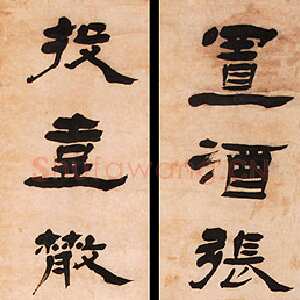 置酒張
投壺散